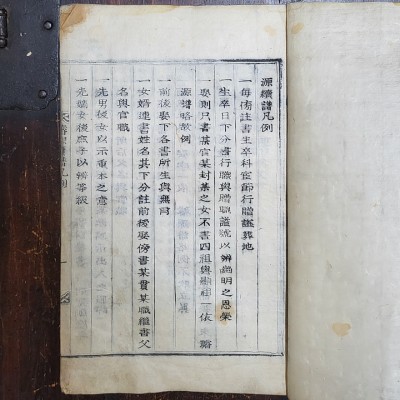 源續譜凡例
一每傍註書生卒科宦行贈謚葬地
一生卒日下分書行職與贈職謚號以辨幽明之恩榮
一娶則只書某官某封某之女不書四祖與顯祖一依
源譜略故例
一前後娶下各書所生與無同
一女婿連書姓名其下分註前後娶傍書某貫某職繼書父
名與官職
一先男後女以示重本之意
一先嫡女後庶子以辨等級
譜凡例